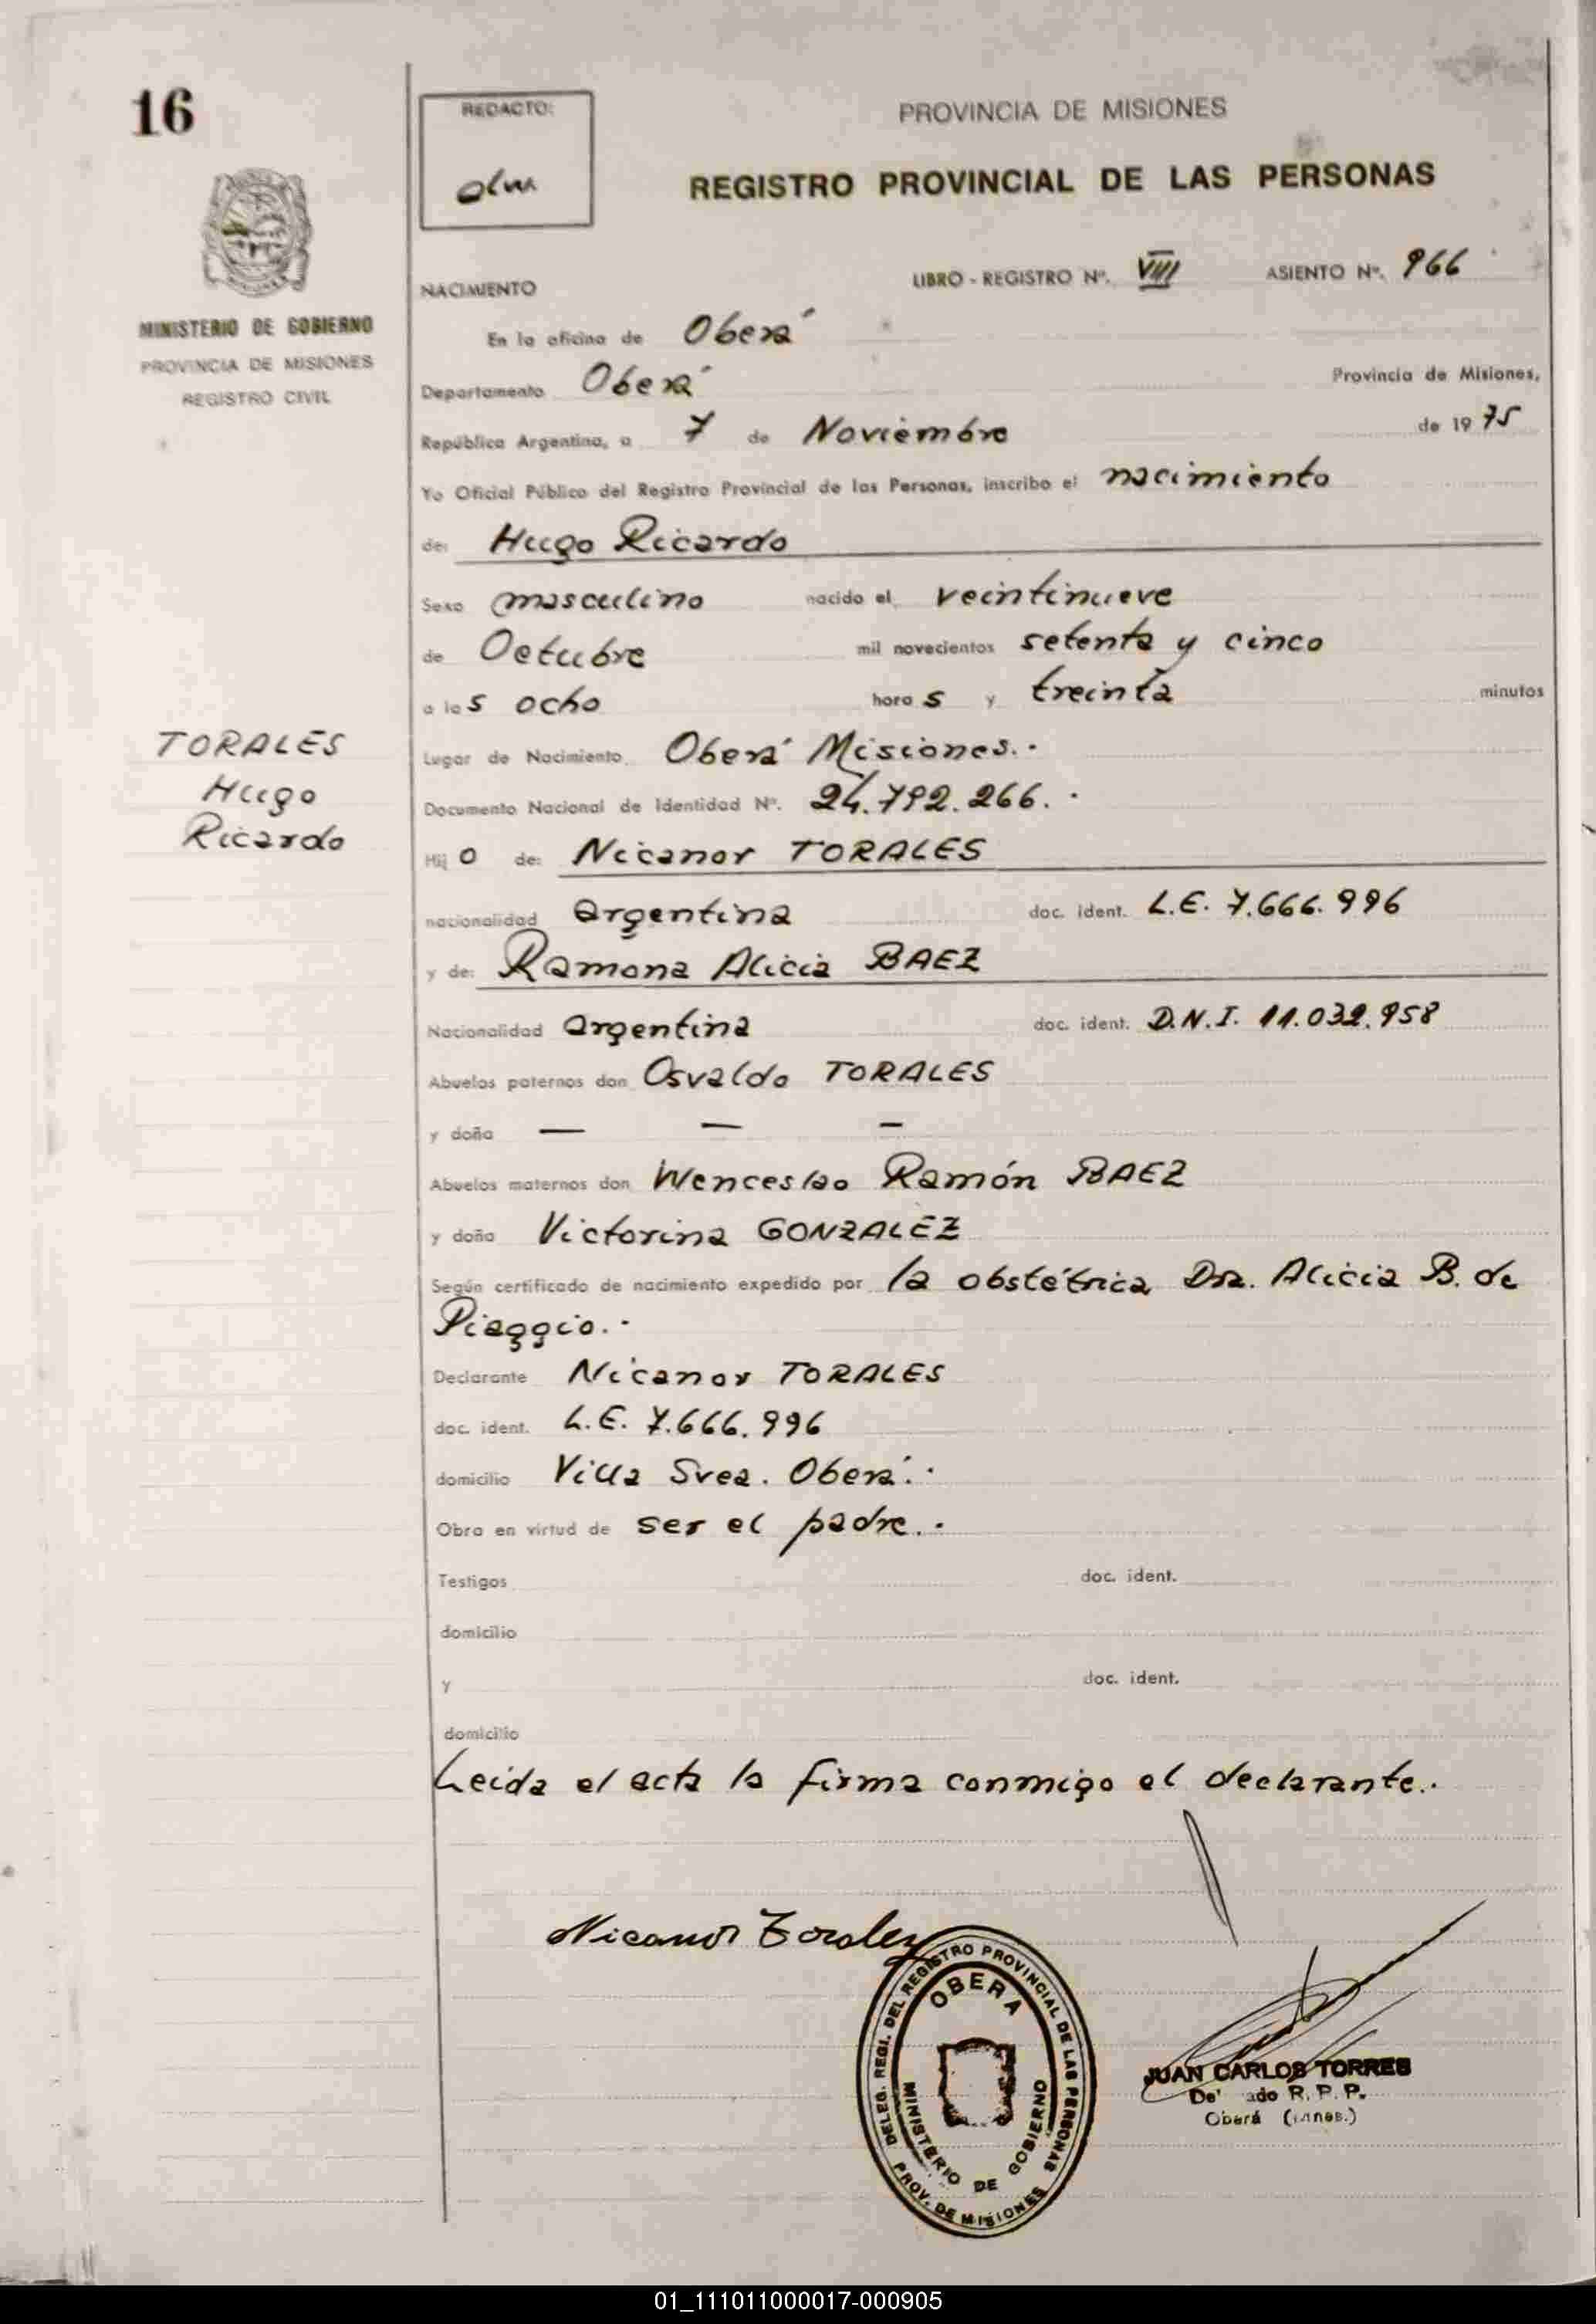 16
REDACTO:
PROVINCIA DE MISIONES
REGISTRO PROVINCIAL DE LAS PERSONAS
MINISTERIO DE GOBIERNO
PROVINCIA DE MISIONES
REGISTRO CIVIL
NACIMIENTO LIBRO - REGISTRO Nº. VIII ASIENTO Nº. 966
En la oficina de Oberá
Departamento Oberá Provincia de Misiones,
República Argentina, a 7 de Noviembre de 1975
Yo Oficial Público del Registro Provincial de las Personas, inscribo el nacimiento
de: Hugo Ricardo
Sexo masculino nacido el veintinueve
de Octubre mil novecientos setenta y cinco
a las ocho horas y treinta minutos
TORALES
Hugo
Ricardo
Lugar de Nacimiento Oberá Misiones.-
Documento Nacional de Identidad Nº. 24.792.266.-
Hijo de: Nicanor TORALES
nacionalidad Argentina doc. ident. L.E. 7.666.996
y de: Ramona Alicia BAEZ
Nacionalidad Argentina doc. ident. D.N.I. 11.032.958
Abuelos paternos don Osvaldo TORALES
y doña — — —
Abuelos maternos don Wenceslao Ramón BAEZ
y doña Victorina GONZALEZ
Según certificado de nacimiento expedido por la obstétrica Dra. Alicia B. de
Piaggio.-
Declarante Nicanor TORALES
doc. ident. L.E. 7.666.996
domicilio Villa Svea. Oberá.-
Obra en virtud de ser el padre.-
Testigos doc. ident.
domicilio
y doc. ident.
domicilio
Leida el acta la firma conmigo el declarante.-
Nicanor Torales
DELEG. REGI. DEL REGISTRO PROVINCIAL DE LAS PERSONAS
OBERA
MINISTERIO DE GOBIERNO
PROV. DE MISIONES
JUAN CARLOS TORRES
R. P. P.
Oberá
01_111011000017-000905